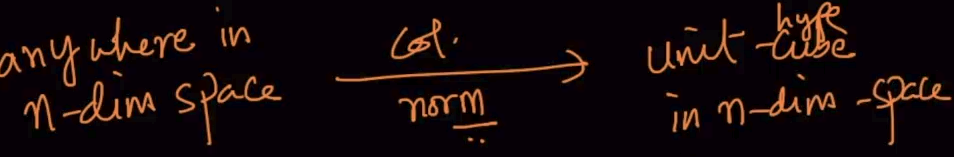 anywhere in
n-dim space
col.
norm
unit hype
-cube
in n-dim -space